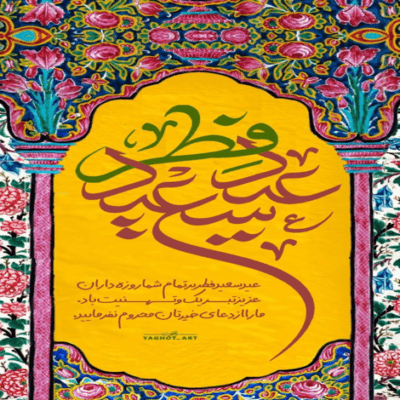 عید سعید فطر
عید سعید فطر بر تمام شما روزه داران
عزیز تبریک و تهنیت باد.
ما را از دعای خیرتان محروم نفرمایید.
YAGHOT_ART